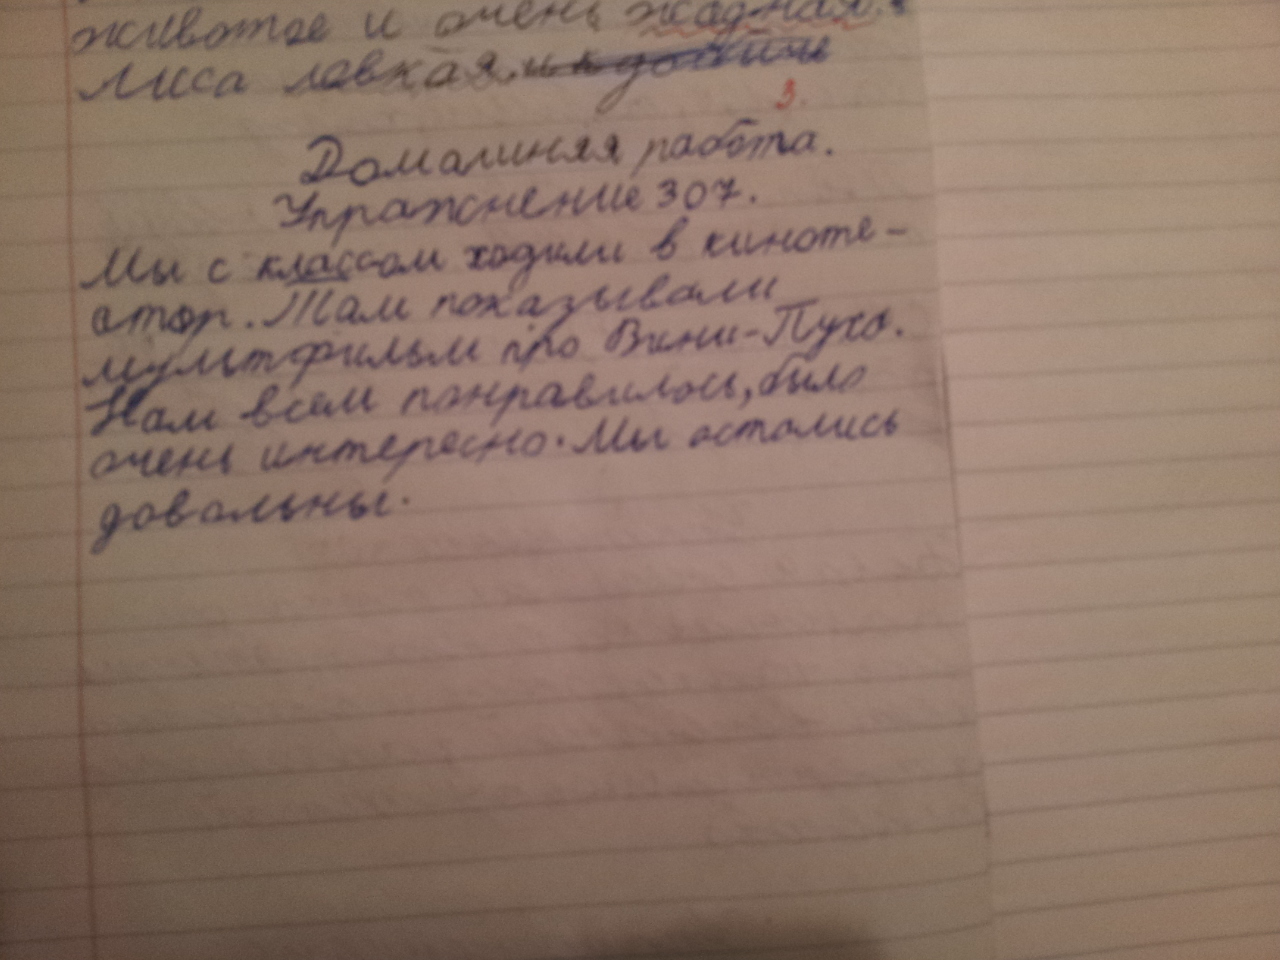 животое и очень жадная.
Лиса лавкая.
3.
Домашняя работа.
Упражнение 307.
Мы с классом ходили в киноте-
атор. Там показывали
мультфильм про Вини-Пуха.
Нам всем понравилось, было
очень интересно. Мы остались
довальны.